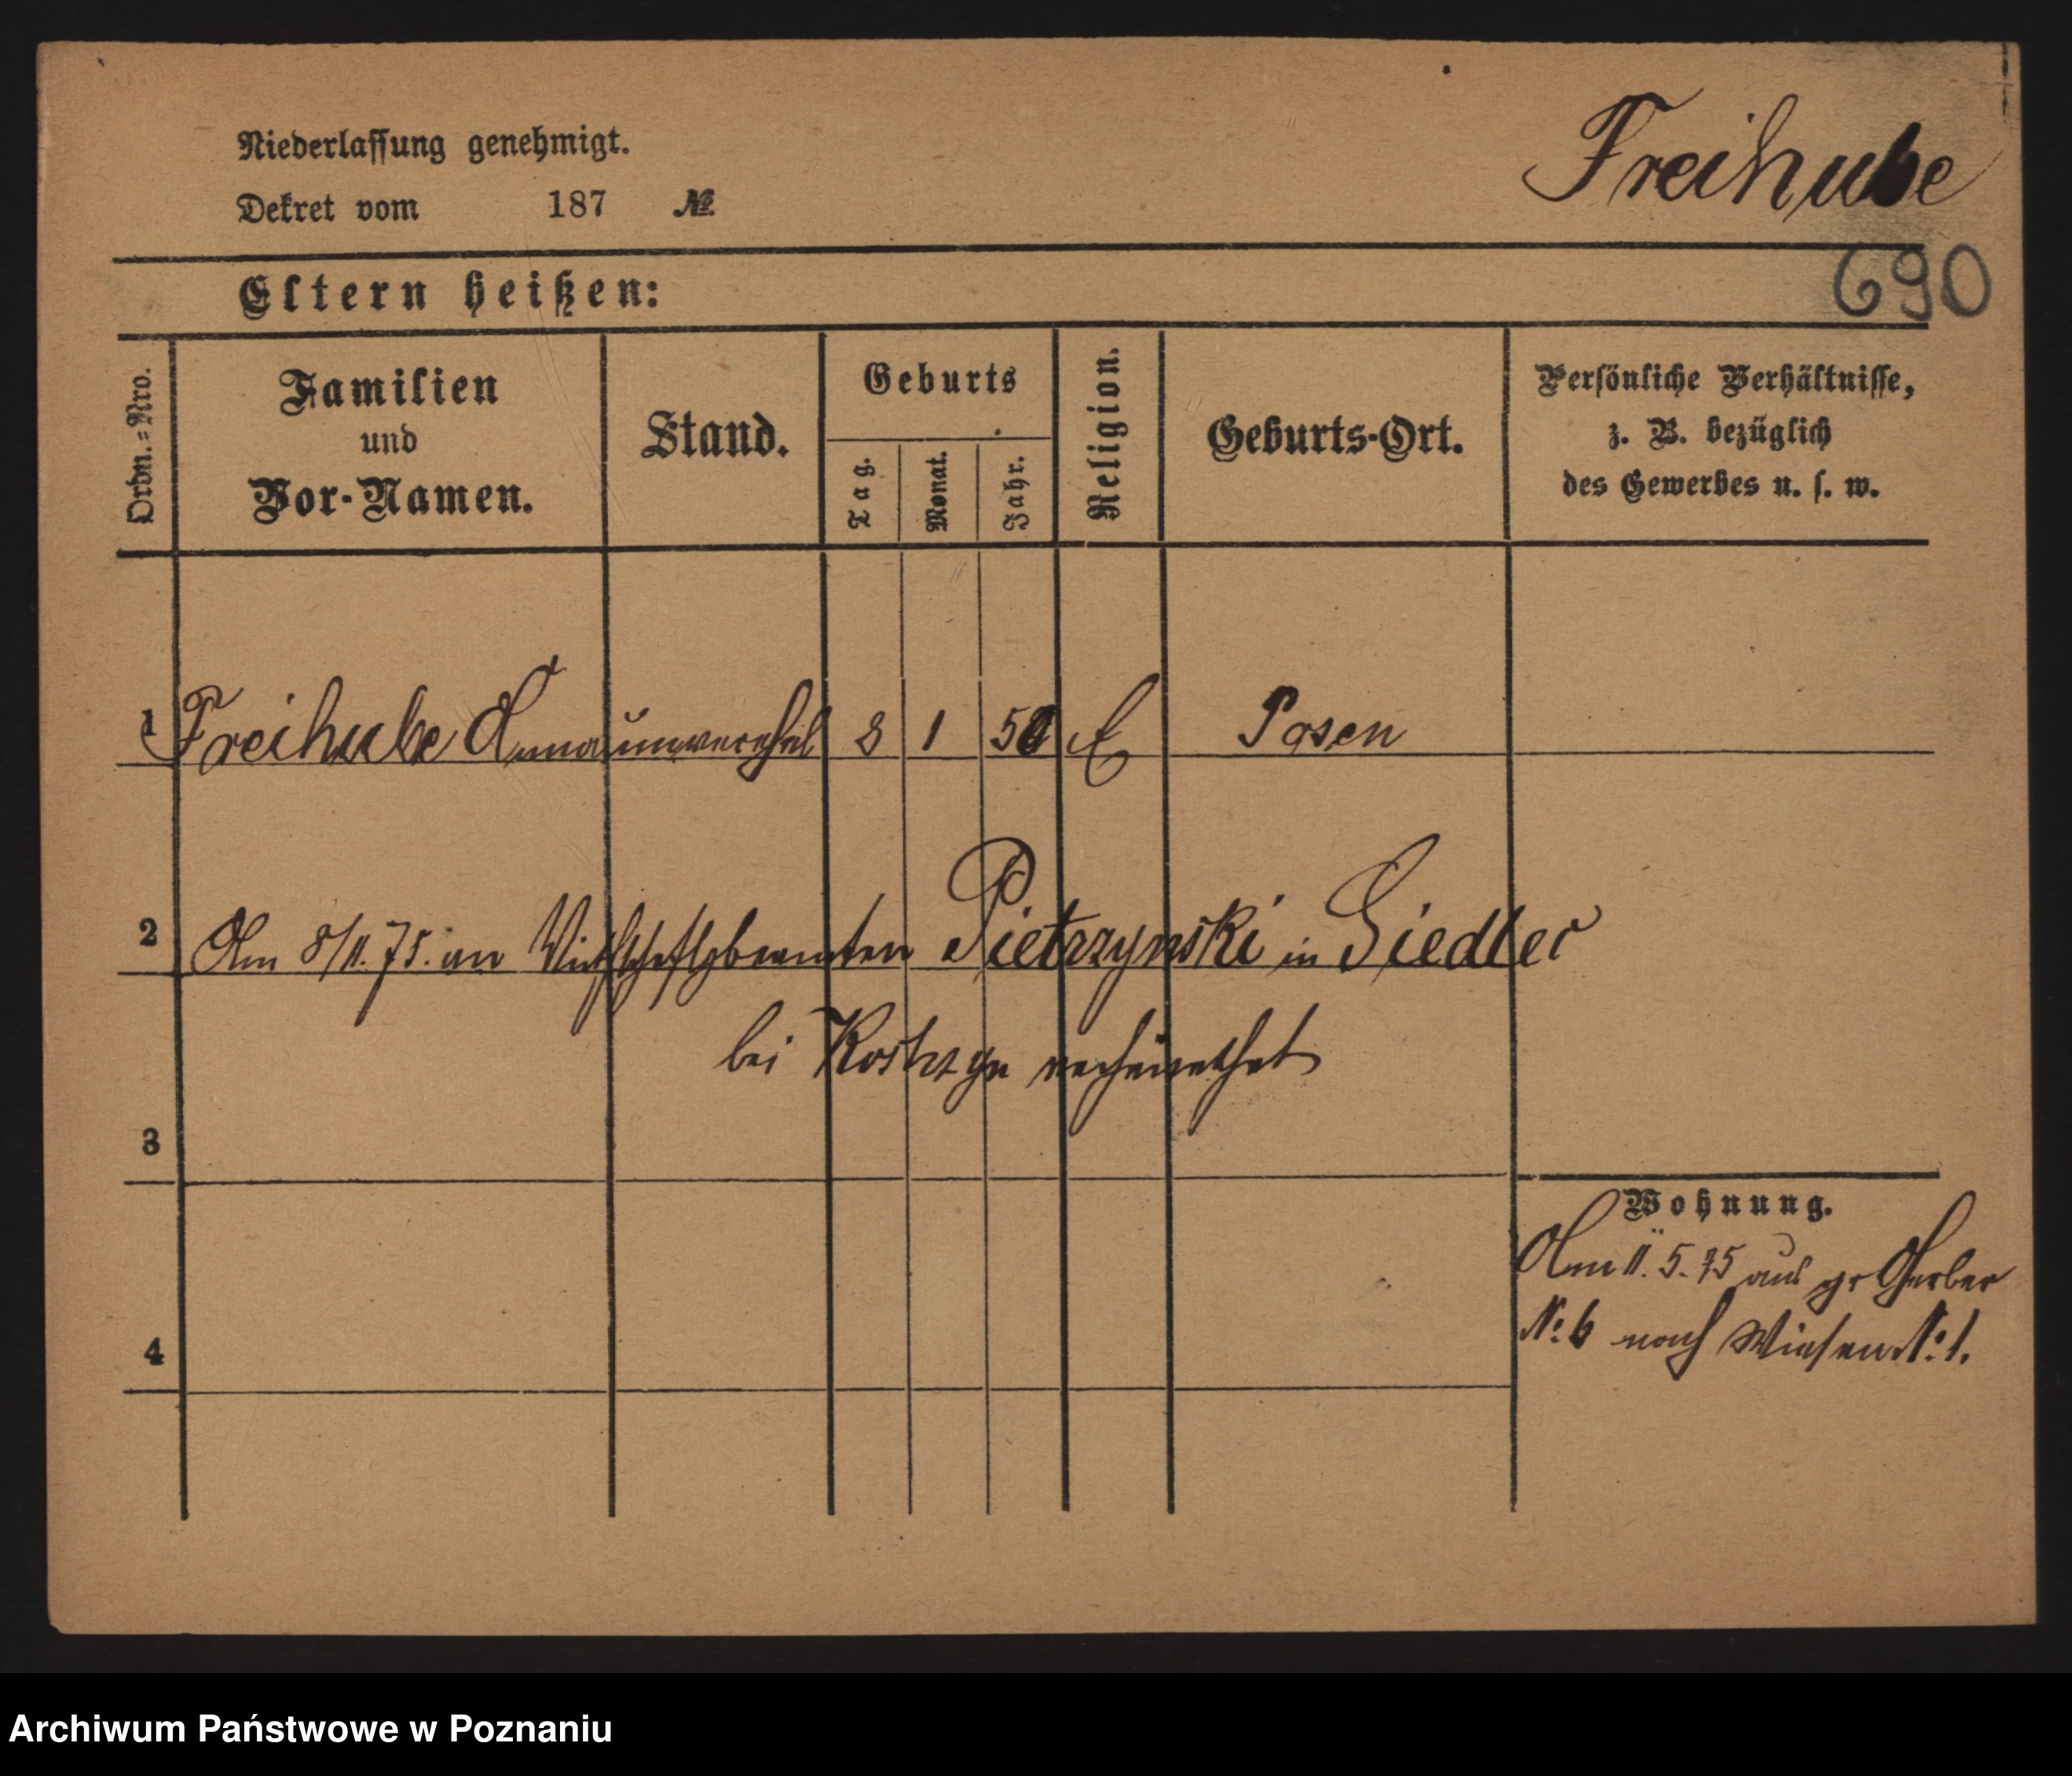 Niederlassung genehmigt.
Dekret vom 187 №.
Freihube
690
Eltern heißen:
Ordn.=Nro.
Familien
und
Vor-Namen.
Stand.
Geburts
Tag.
Monat.
Jahr.
Religion.
Geburts-Ort.
Persönliche Verhältnisse,
z. B. bezüglich
des Gewerbes u. s. w.
1 Freihube Anna unverehel 8 1 50 E Posen
2 Am 8/11. 75. an Wirthschaftsbeamten Pietrzynski in Siedlec
bei Kostrzyn verheirathet
3
Wohnung.
Am 11. 5. 75 aus gr Gerber
№ 6 nach Wiesen № 1.
4
Archiwum Państwowe w Poznaniu